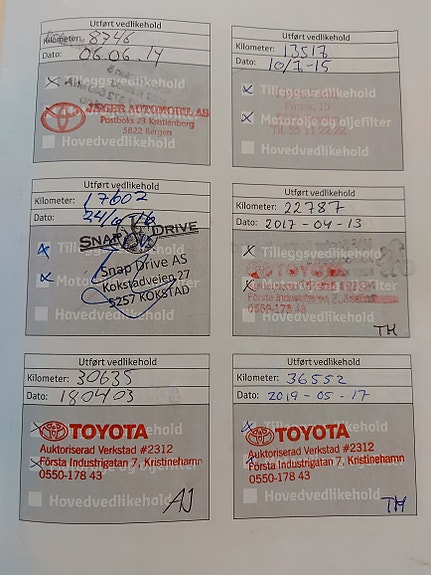 Utført vedlikehold
Kilometer: 8746
Dato: 06.06.14
Tilleggsvedlikehold
JÆGER AUTOMOBIL AS
Postboks 23 Kristianborg
5822 Bergen
Hovedvedlikehold
Utført vedlikehold
Kilometer: 13517
Dato: 10/7-15
Tilleggsvedlikehold
Motorolje og oljefilter
Tlf. 55 11 22 22
Hovedvedlikehold
Utført vedlikehold
Kilometer: 17602
Dato:
Tilleggsvedlikehold
SNAP DRIVE
Snap Drive AS
Kokstadveien 27
5257 KOKSTAD
Hovedvedlikehold
Utført vedlikehold
Kilometer: 22787
Dato: 2017-04-13
Tilleggsvedlikehold
TOYOTA
Första Industrigatan 7,
0550-178 43
Hovedvedlikehold
TH
Utført vedlikehold
Kilometer: 30635
Dato: 180403
TOYOTA
Auktoriserad Verkstad #2312
Första Industrigatan 7, Kristinehamn
0550-178 43
Hovedvedlikehold
AJ
Utført vedlikehold
Kilometer: 36552
Dato: 2019-05-17
TOYOTA
Auktoriserad Verkstad #2312
Första Industrigatan 7, Kristinehamn
0550-178 43
Hovedvedlikehold
TH